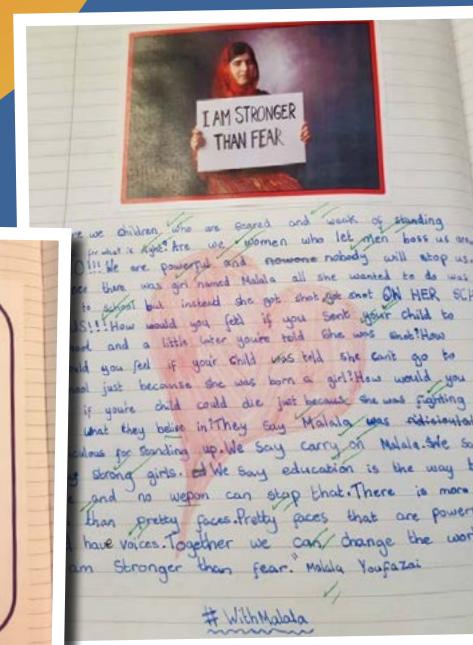 I AM STRONGER
THAN FEAR
we children who are scared and weak of standing
for what is right? Are we women who let men boss us
!!! We are powerful and nowone nobody will stop us.
there was girl named Malala all she wanted to do was
to school but instead she got shot, got shot ON HER
!!! How would you feel if you sent your child to
and a little later youre told she was shot? How
you feel if your child was told she cant go to
just because she was born a girl? How would you
if you're child could die just because she was fighting
what they belive in! They say Malala was
for standing up. We say carry on Malala. We
strong girls. We say education is the way
and no wepon can stop that. There is more
than pretty faces. Pretty faces that are
have voices. Together we can change the
am stronger than fear." Malala Youfazai
# WithMalala